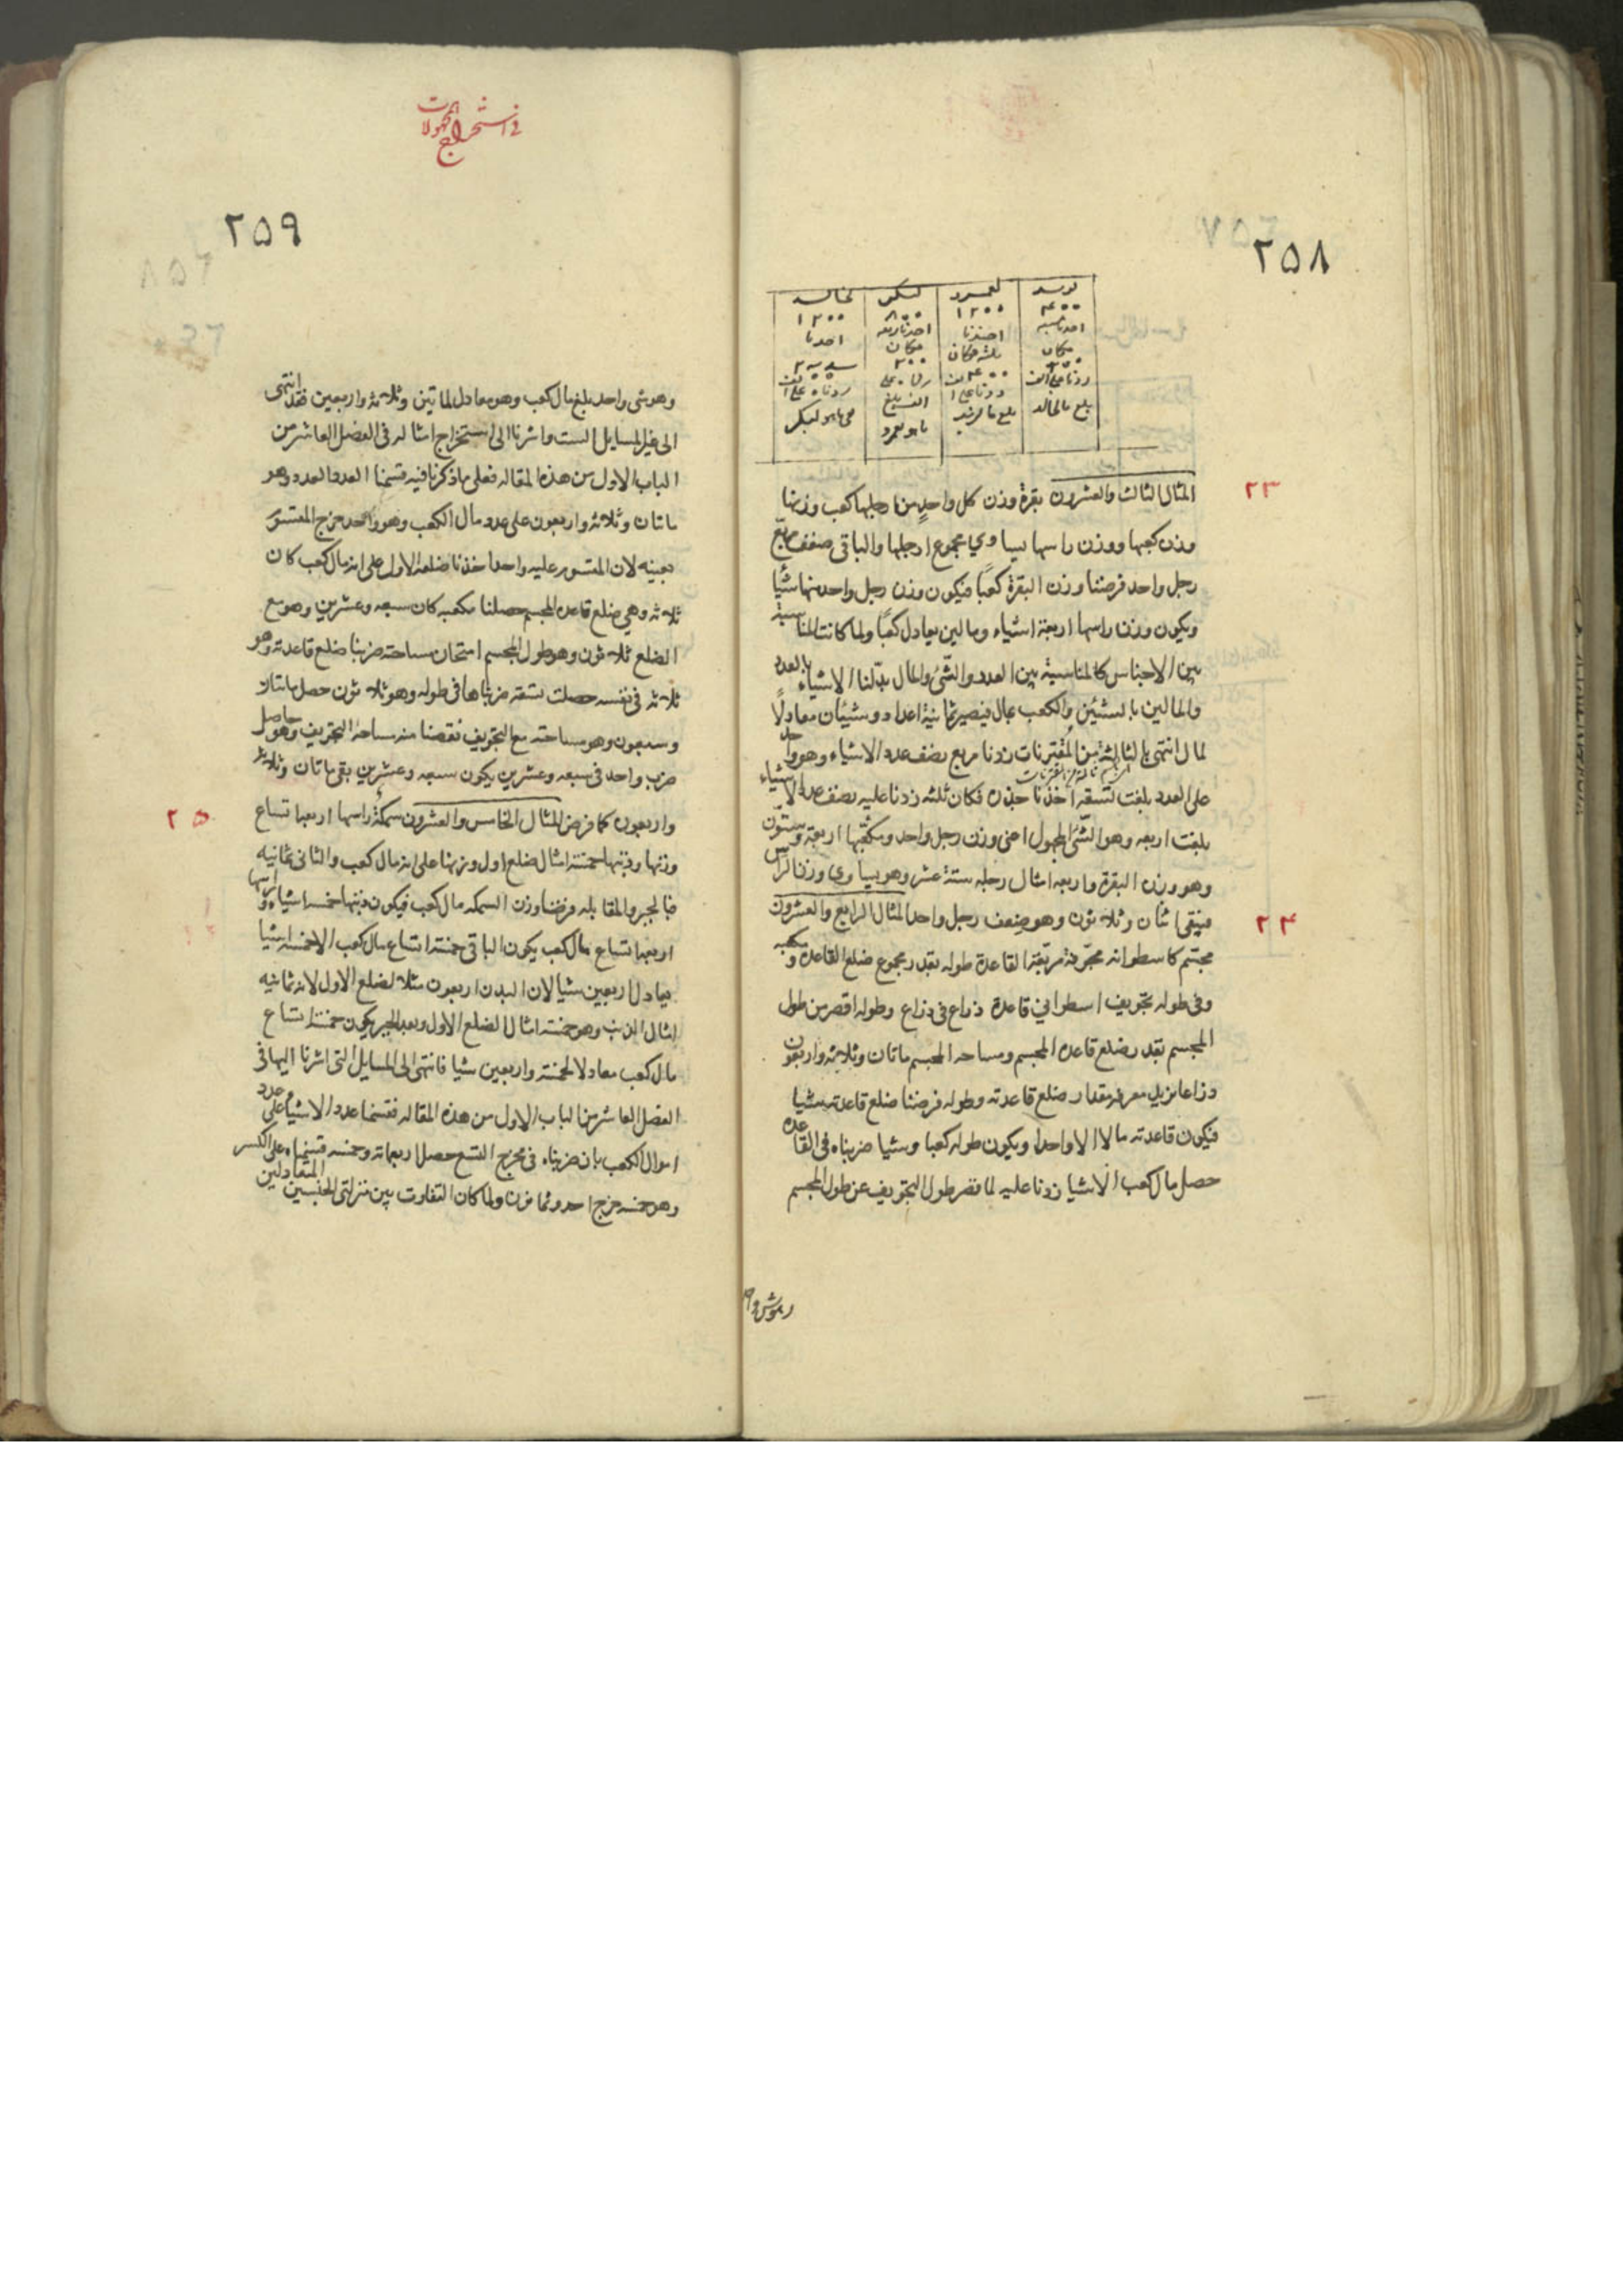 ٢٥٨
لزيد لعمرو لبكر لخالد
٤٠٠ ١٢٠٠ ٨٠٠ ١٢٠٠
المثال الثالث والعشرون بقرة وزن كل واحد من رجلها كعب وزنها
٢٣
وزن كعبها ووزن راسها يساوي مجموع ارجلها والباقي ضعف مربع
رجل واحد فرضنا وزن البقرة كعبًا فيكون وزن رجل واحد منها شيأ
ويكون وزن راسها اربعة اشياء ومالين يعادل كعبًا ولما كانت المناسبة
بين الاجناس كالمناسبة بين العدد والشئ والمال بدّلنا الاشياء بالعدد
والمالين بالشيئين والكعب بمال فيصير ثمانية اعداد وشيئان معادلًا
لمال انتهى بالثالثة من المقترنات زدنا مربع نصف عدد الاشياء وهو واحد
على العدد بلغت تسعة اخذنا جذره فكان ثلثه زدنا عليه نصف عدد الاشياء
بلغت اربعه وهو الشئ المجهول اعنى وزن رجل واحد ومكعبها اربعة وستون
وهو وزن البقرة واربعه امثال رجله ستة عشر وهو يساوي وزن الراس
فيبقى اثنان وثلاثون وهو ضعف رجل واحد المثال الرابع والعشرون
٢٤
مجسّم كاسطوانه مجوّفة مربّعة القاعدة طوله بقدر مجموع ضلع القاعدة ومكعبه
وفى طوله تجويف اسطواني قاعدة ذراع فى ذراع وطوله اقصر من طول
المجسم بقدر ضلع قاعده المجسم ومساحه المجسم ماتان وثلاثه واربعون
ذراعا نريد معرفه مقدار ضلع قاعدته وطوله فرضنا ضلع قاعدته شيا
فيكون قاعدته مالا الا واحدا ويكون طوله كعبا وشيا ضربناه فى القاعده
حصل مال كعب الا شيا زدنا عليه لما قصر طول التجويف عن طول المجسم
فى استخراج المجهولات
٢٥٩
وهو شى واحد بلغ مال كعب وهو معادل لماتين وثلاثه واربعين فقد انتهى
الى غير المسايل الست واشرنا الى استخراج امثاله فى الفصل العاشر من
الباب الاول من هذه المقاله فعلى ما ذكرنا فيه قسمنا العدد العدد وهو
ماتان وثلاثه واربعون على عدد مال الكعب وهو واحد خرج المقسوم
بعينه لان المقسوم عليه واحد اخذنا ضلعه الاول على انه مال كعب كان
ثلاثه وهي ضلع قاعده المجسم حصلنا مكعبه كان سبعه وعشرين وهو مع
الضلع ثلاثون وهو طول المجسم امتحان مساحته ضربنا ضلع قاعدته وهو
ثلاثه فى نفسه حصلت تسعه ضربناها فى طوله وهو ثلاثون حصل ماتان
وسبعون وهو مساحته مع التجويف نقصنا منه مساحة التجويف وهو حاصل
ضرب واحد فى سبعه وعشرين يكون سبعه وعشرين بقى ماتان وثلاثه
واربعون كما فرض المثال الخامس والعشرون سمكة راسها اربعه اتساع
٢٥
وزنها وذنبها خمسة امثال ضلع اول وزنها على انه مال كعب والثانى ثمانيه
فبالجبر والمقابله فرضنا وزن السمكه مال كعب فيكون ذنبها خمسه اشياء وراسها
اربعه اتساع مال كعب يكون الباقى خمسة اتساع مال كعب الا خمسه اشيا
يعادل اربعين شيا لان البدن اربعون مثلا لضلع الاول لانه ثمانيه
امثال الذنب وهو خمسة امثال الضلع الاول وبعد الجبر يكون خمسة اتساع
مال كعب معادلا لخمسة واربعين شيا فانتهى الى المسايل التى اشرنا اليها فى
الفصل العاشر من الباب الاول من هذه المقاله فقسمنا عدد الاشياء على عدد
اموال الكعب بان ضربناه فى مخرج التسع حصل اربعمائه وخمسه قسمناه على الكسر
وهو خمسه خرج احد وثمانون ولما كان التفاوت بين منزلتى الجنسين المتعادلين